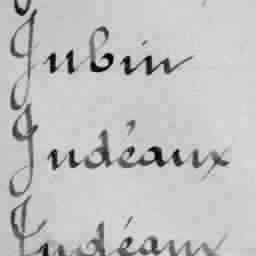 Jubin
Judéaux
Judéaux